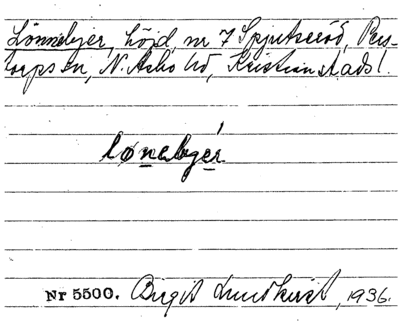 Lönnebjer, höjd, nr 7 Spjutseröd, Pers-
torps sn, N. Åsbo hd, Kristianstads l.
lønabjér
Nr 5500. Birgit Lundkvist, 1936.